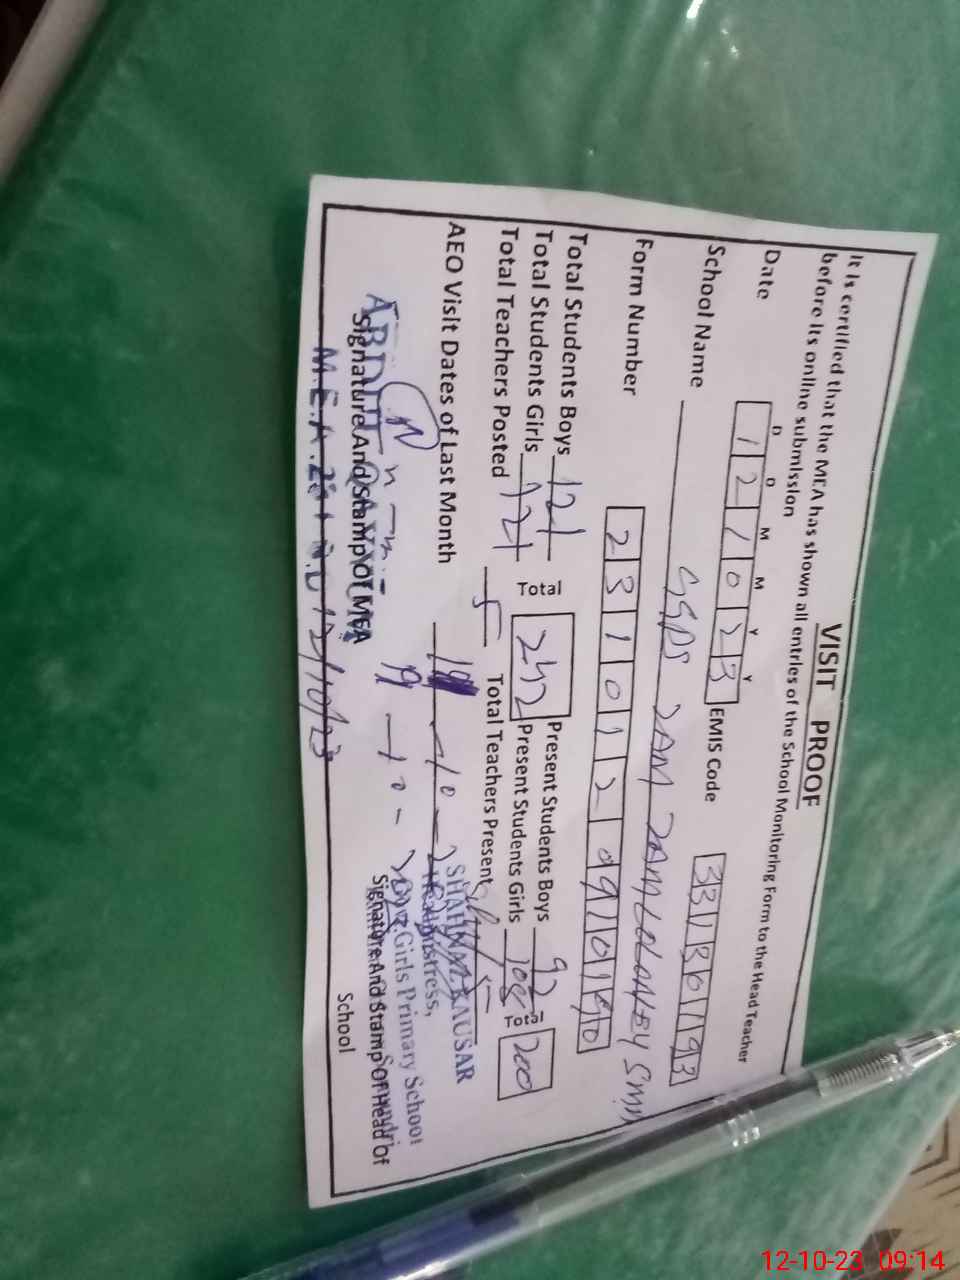 VISIT PROOF
It is certified that the MEA has shown all entries of the School Monitoring Form to the Head Teacher
before its online submission
D D M M Y Y
Date 1 2 1 0 2 3 EMIS Code 3 3 1 3 0 1 1 9 3
School Name GGPS JAM JAM COLONEY SMN
Form Number 2 3 1 0 1 2 0 9 1 0 1
Total Students Boys 121 Total 242 Present Students Boys 92 Total 200
Total Students Girls 121 Present Students Girls 108
Total Teachers Posted 5 Total Teachers Present 5
AEO Visit Dates of Last Month
SHAHNAZ KAUSAR
Headmistress,
Govt. Girls Primary School
ABDUL QAYYUM
Signature And Stamp Of MEA
M.E.A. 12/10/23
Signature And Stamp Of Head of
School
12-10-23 09:14